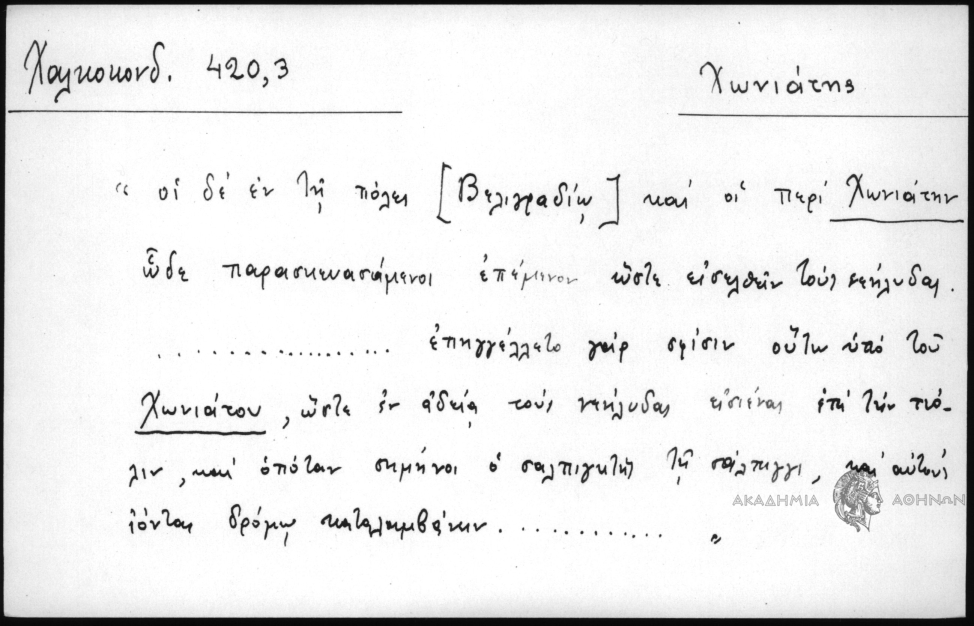 Χαλκοκονδ. 420,3
Χωνιάτης
“ οἱ δὲ ἐν τῇ πόλει [Βελιγραδίῳ] καὶ οἱ περὶ Χωνιάτην
ὧδε παρασκευασάμενοι ἐπέμενον ὥστε εἰσελθεῖν τοὺς νεήλυδας.
.................. ἐπηγγέλλετο γὰρ σφίσιν οὕτω ὑπὸ τοῦ
Χωνιάτου, ὥστε ἐν ἀδείᾳ τοὺς νεήλυδας εἰσιέναι ἐπὶ τὴν πό-
λιν, καὶ ὁπόταν σημήνοι ὁ σαλπιγκτὴς τῇ σάλπιγγι, καὶ αὐτοὺς
ἰόντας δρόμῳ καταλαμβάνειν. ............ „
ΑΚΑΔΗΜΙΑ ΑΘΗΝΩΝ